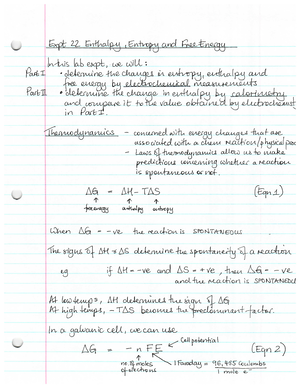 Expt 22. Enthalpy, Entropy and Free Energy
In this lab expt, we will:
Part I • determine the changes in entropy, enthalpy and
free energy by electrochemical measurements
Part II • determine the change in enthalpy by calorimetry
and compare it to the value obtained by electrochemist
in Part I.
Thermodynamics - concerned with energy changes that are
associated with a chem reaction/physical proc
- Laws of thermodynamics allow us to make
predictions concerning whether a reaction
is spontaneous or not.
ΔG = ΔH - TΔS (Eqn 1)
↑ ↑ ↑
free energy enthalpy entropy
When ΔG = -ve the reaction is SPONTANEOUS
The signs of ΔH & ΔS determine the spontaneity of a reaction
eg if ΔH = -ve and ΔS = +ve, then ΔG = -ve
and the reaction is SPONTANEOUS
At low temps, ΔH determines the sign of ΔG
At high temps, -TΔS becomes the predominant factor.
In a galvanic cell, we can use
ΔG = - n F E ← Cell potential (Eqn 2)
no. of moles of electrons
1 Faraday = 96,485 coulombs
1 mole e⁻